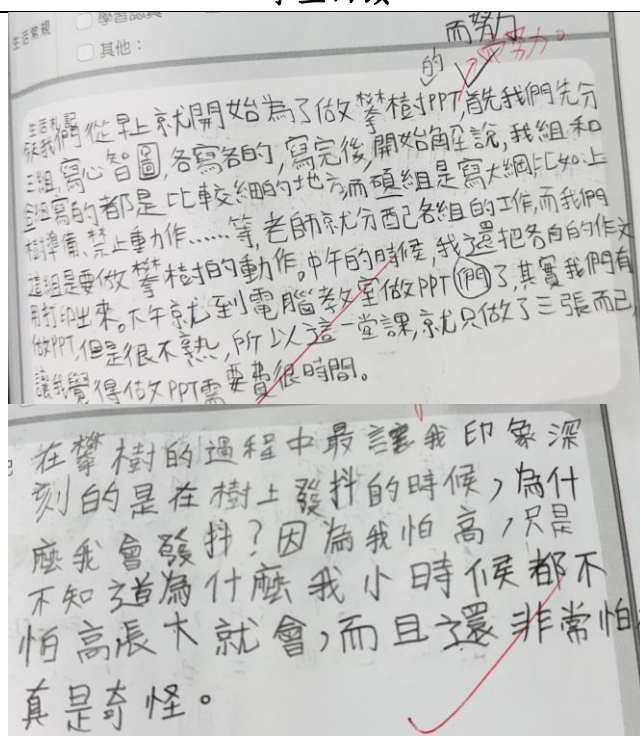 生活常規
其他：
而努力
的
而努力。
生活札記
今天我們從早上就開始為了做攀樹PPT,首先我們先分
三組,寫心智圖,各寫各的,寫完後,開始解說,我組和
組寫的都是比較細的地方,而組是寫大綱,比如:上
樹準備、禁止動作......等,老師就分配各組的工作,而我們
這組是要做攀樹的動作。中午的時候,我還把各自的作文
用打印出來。下午就到電腦教室做PPT們了,其實我們有
做PPT,但是很不熟,所以這一堂課,就只做了三張而已,
讓我覺得做PPT需要費很時間。
在攀樹的過程中最讓我印象深
刻的是在樹上發抖的時候,為什
麼我會發抖?因為我怕高,只是
不知道為什麼我小時候都不
怕高長大就會,而且還非常怕
真是奇怪。